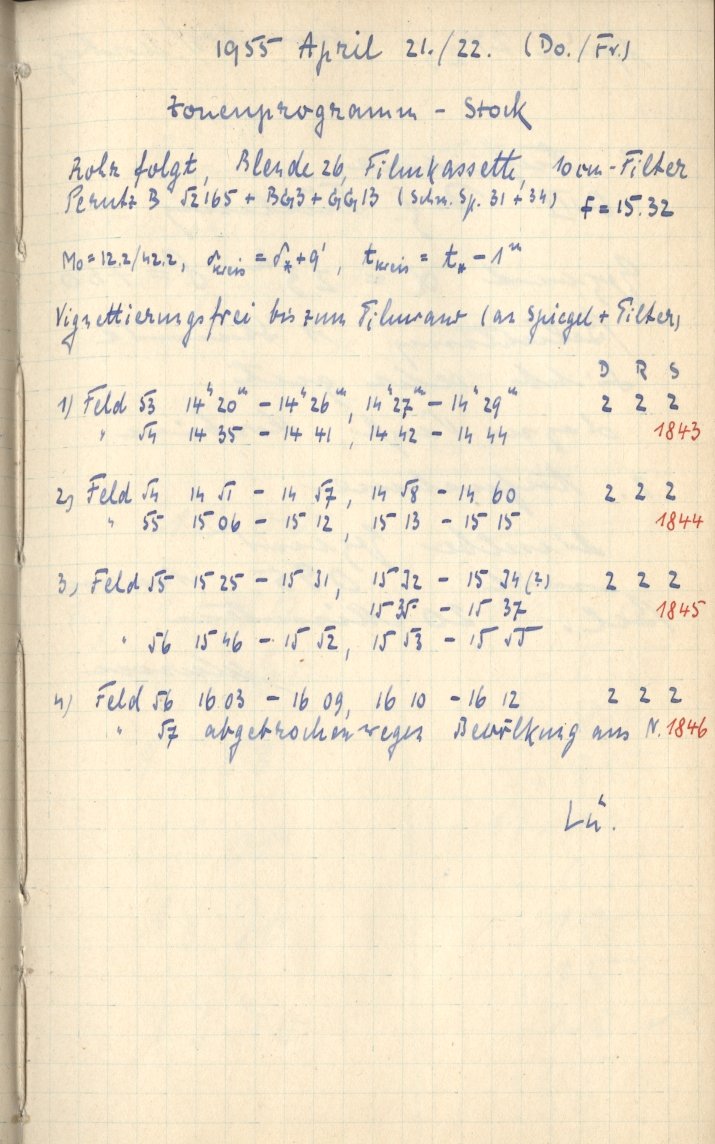 1955 April 21./22. (Do./Fr.)
Zonenprogramm - Stock
Rohr folgt, Blende 26, Filmkassette, 10 cm-Filter
Perutz B 52165 + BG3 + GG13 (Schm. Sp. 31 + 34) f = 15.32
M₀ = 12.2/42.2, δkreis = δ* + 9', tkreis = t* - 1ᵐ
Vignettierungsfrei bis zum Filmrand (an Spiegel + Filter)
D R S
1) Feld 53 14ʰ 20ᵐ - 14ʰ 26ᵐ, 14ʰ 27ᵐ - 14ʰ 29ᵐ 2 2 2
" 54 14 35 - 14 41, 14 42 - 14 44 1843
2) Feld 54 14 51 - 14 57, 14 58 - 14 60 2 2 2
" 55 15 06 - 15 12, 15 13 - 15 15 1844
3) Feld 55 15 25 - 15 31, 15 32 - 15 34 (?) 2 2 2
15 35 - 15 37 1845
" 56 15 46 - 15 52, 15 53 - 15 55
4) Feld 56 16 03 - 16 09, 16 10 - 16 12 2 2 2
" 57 abgebrochen wegen Bewölkung aus N. 1846
Lü.